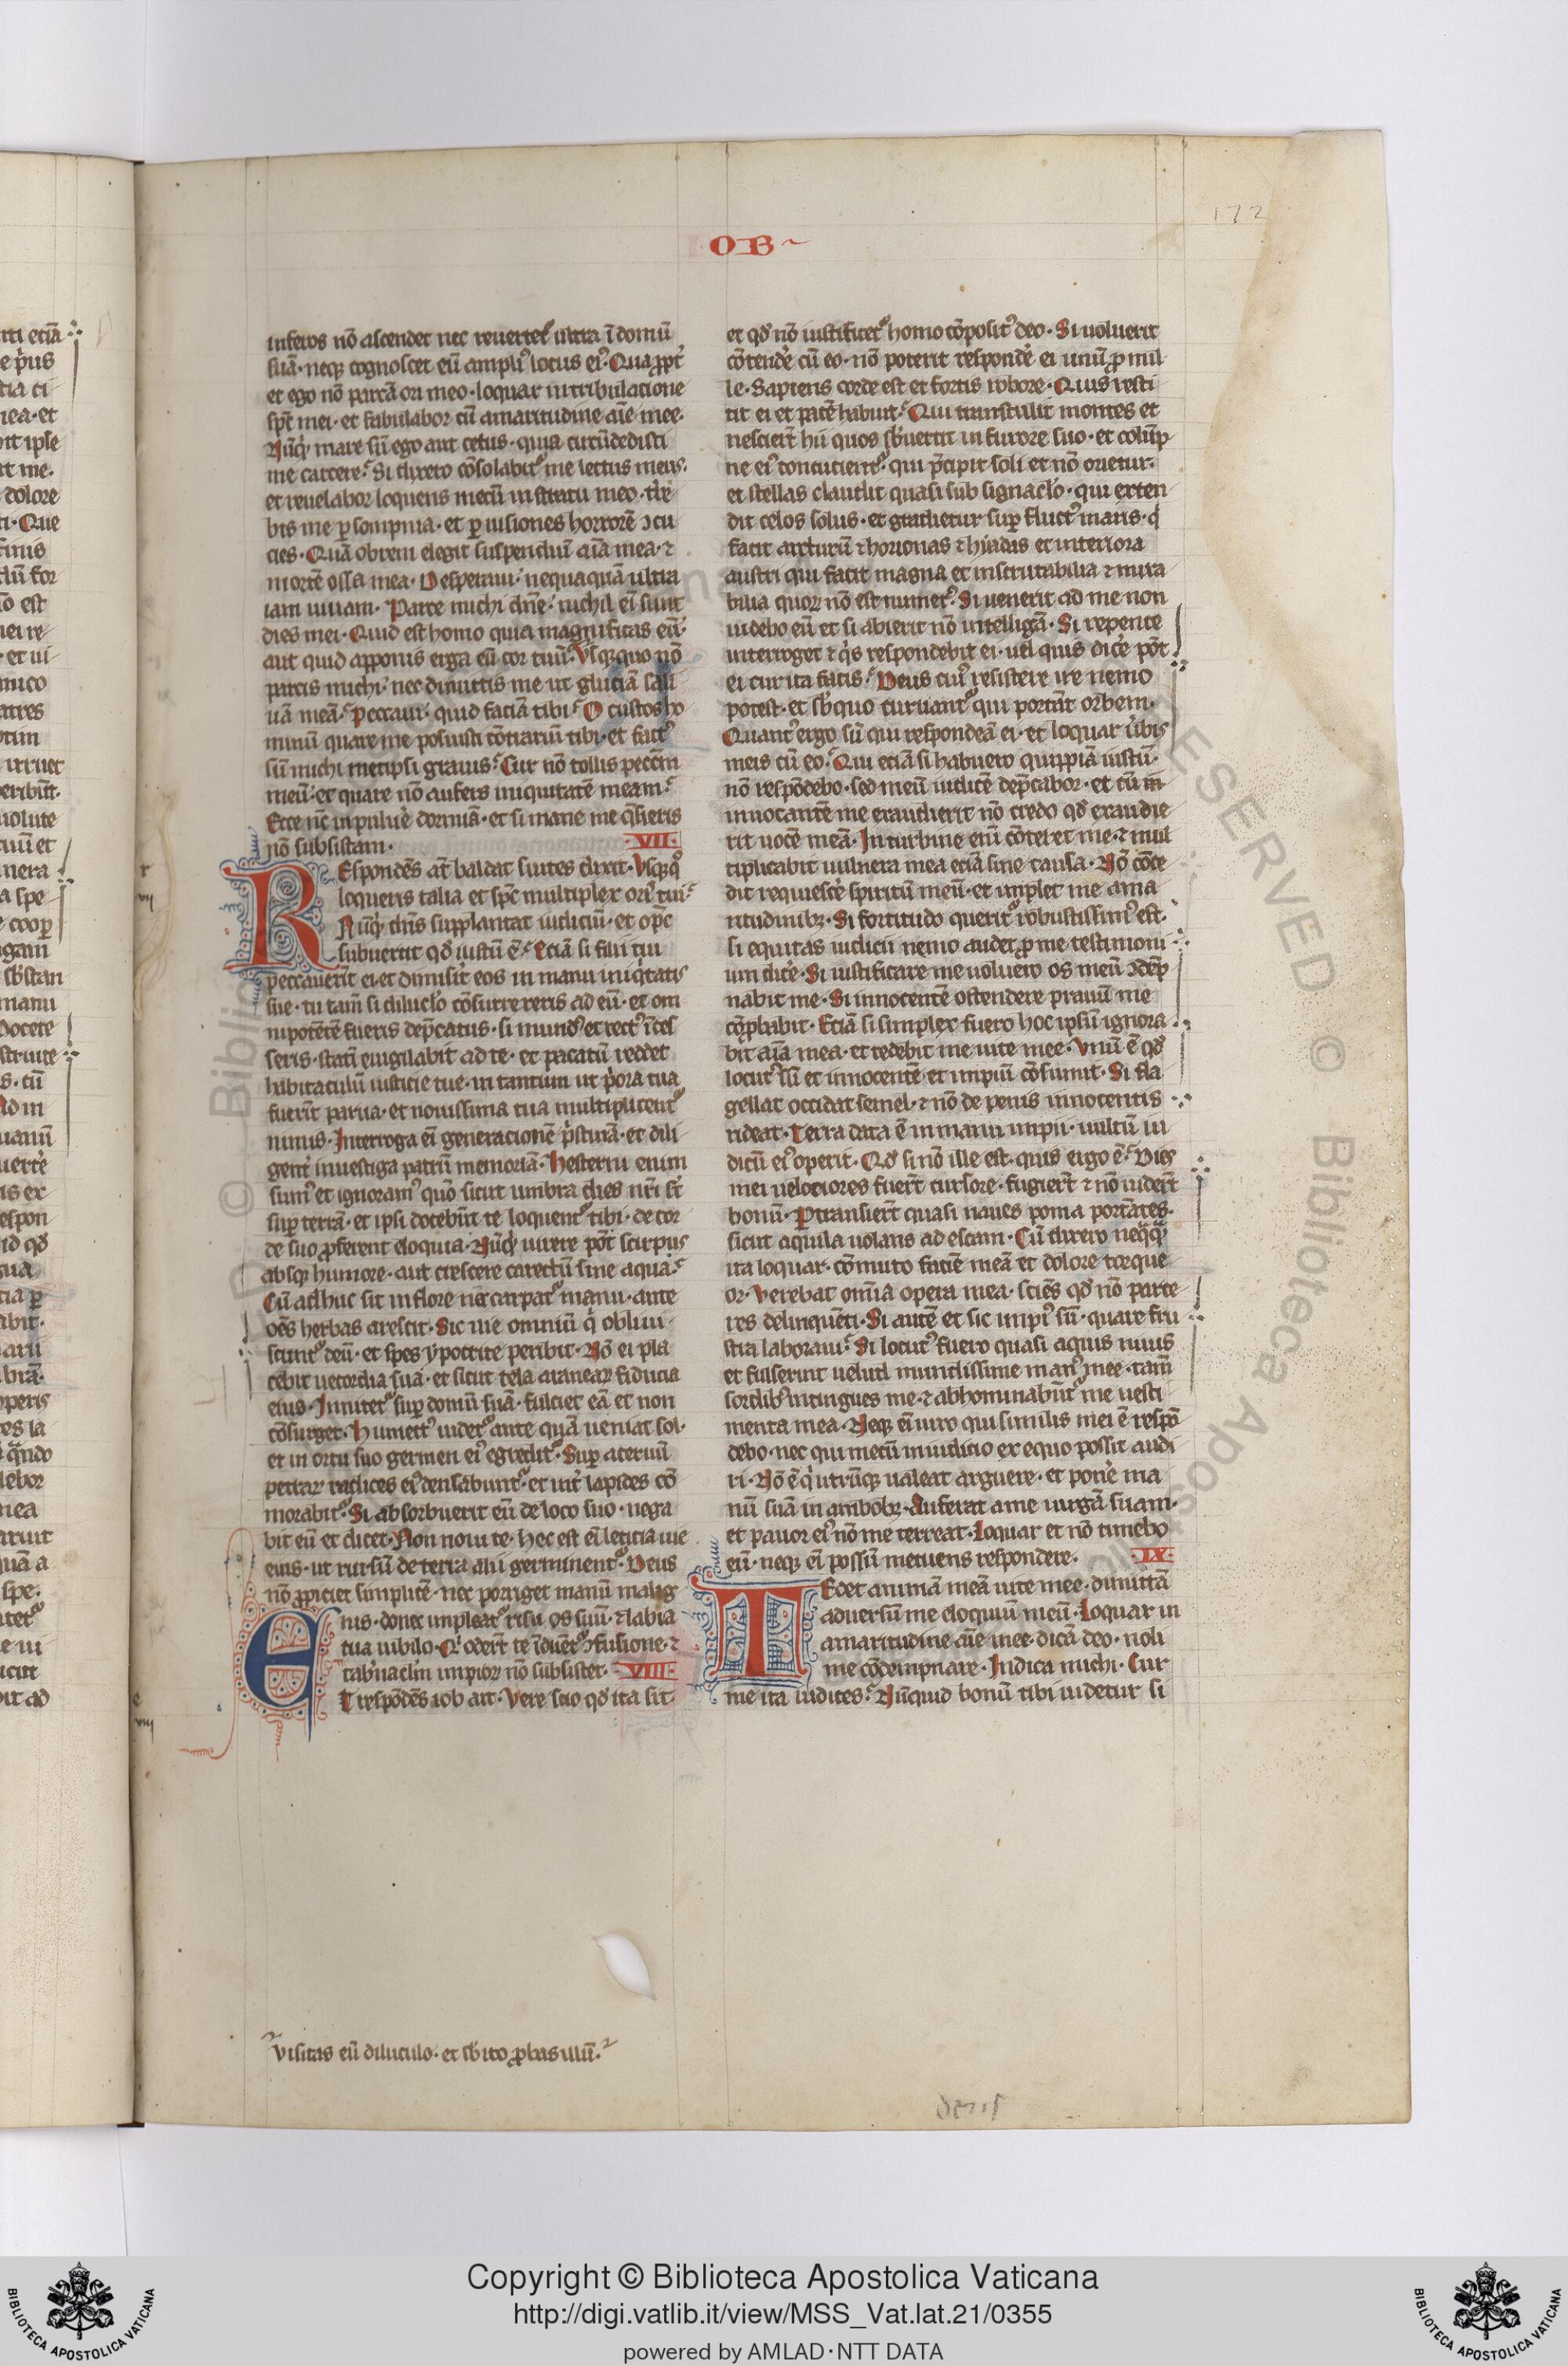 172
IOB
inferos nō ascendet nec reuertet᷒ ultra ī domū
suā · neq; cognoscet eū ampliꝰ locus eiꝰ · Quaꝓpt̓
et ego nō parcā ori meo · loquar in tribulacione
sp̄c mei · et fabulabor cū amaritudine aīe mee ·
Nūq̓d mare sū ego aut cetus · quia circūdedisti
me carcere · Si dixero cōsolabit᷒ me lectus meus ·
et releuabor loquens mecū in stratu meo · t̓re
bis me p̲ sompnia · et p̲ uisiones horrorē ꝯcu
cies · Quā obrem elegit suspendiū aīa mea · ⁊
mortē ossa mea · Desperaui · nequaquā ultra
iam uiuam · Parce michi dn̄e · nichil ei̅ sunt
dies mei · Quid est homo quia magnificas eū ·
aut quid apponis erga eū cor tuū · Usq;quo nō
parcis michi · nec dimittis me ut gluciā sali
uā meā · Peccaui · quid faciā tibi · O custos ho
minū quare me posuisti cōtrariū tibi · et factꝰ
sū michi metipsi grauis · Cur nō tollis pecc̄m
meū · et quare nō aufers iniquitatē meam ·
Ecce nc̄ in puluē dormiā · et si mane me q̄sieris
nō subsistam · VII
Respondēs at̄ baldat suites dixit · Usq;q̊
loqueris talia et sp̄c multiplex oriꝰ tui ·
Nūq̓d dn̄s supplantat iudiciū · et op̄c
subuertit qd̓ iustū ē · Eciā si filii tui
peccauerūt ei et dimisit eos in manu iniq̓tatis
sue · tu tam̄ si diluclo cōsurrexeris ad eū · et om
nipotētē fueris dep̄catus · si mundꝰ et rectꝰ īces
seris · statī euigilabit ad te · et pacatū reddet
habitaculū iusticie tue · in tantum ut p̓ora tua
fuerīt parua · et nouissima tua multiplicent᷒
nimis · Interroga ei̅ generacionē p̓stinā · et dili
gent̓ inuestiga patrū memoriā · Hesterni enim
sumꝰ et ignoramꝰ quō sicut umbra dies nr̄i st̄
sup̲ terrā · et ipsi docebūt te loquent᷒ tibi · de cor
de suo ꝓferent eloquia · Nūq̓d uirere pōt scirpus
absq; humore · aut crescere carectū sine aqua ·
Cū adhuc sit in flore nec carpat᷒ manu · ante
oēs herbas arescit · Sic uie omniū q̓ obliui
scunt᷒ deū · et spes ypocrite peribit · Nō ei pla
cebit uecordia sua · et sicut tela aranear̄ fiducia
eius · Innitet᷒ sup̲ domū suā · fulciet eā et non
cōsurget · Humectꝰ uidet᷒ ante quā ueniat sol ·
et in ortu suo germen eiꝰ egredit᷒ · Sup̲ aceruū
petrar̄ radices eiꝰ densabunt᷒ · et int̓ lapides cō
morabit᷒ · Si absorbuerit eū de loco suo · nega
bit eū et dicet · Non noui te · hec est ei̅ leticia uie
eius · ut rursū de terra alii germinent᷒ · Deus
nō ꝓiciet simplicē · nec porriget manū malig
nis · donec impleat᷒ risu os tuū · ⁊ labia
tua iubilo · Q̓ oderūt te īduēt᷒ ꝯfusione · ⁊
tab̓naclm̄ impior̄ nō subsistet · VIII
ET respōdēs iob ait · Vere scio qd̓ ita sit
et qd̓ nō iustificet᷒ homo cōpositꝰ deo · Si uoluerit
cōtendē cū eo · nō poterit respondē ei unū ꝓ mil
le · Sapiens corde est et fortis robore · Quis resti
tit ei et pacē habuit · Qui transtulit montes et
nescierūt hii quos sb̓uertit in furore suo · et colūp
ne eiꝰ concucient᷒ · qui p̄cipit soli et nō oritur ·
et stellas claudit quasi sub signaclo · qui exten
dit celos solus · et gradietur sup̲ fluctꝰ maris · q̓
facit arcturū ⁊ horionas ⁊ hiadas et interiora
austri qui facit magna et inscrutabilia ⁊ mira
bilia quor̄ nō est numerꝰ · Si uenerit ad me non
uidebo eū et si abierit nō intelligā · Si repente
interroget ⁊ q̓s respondebit ei · uel quis dicē pōt
ei cur ita facis · Deus cuiꝰ resistere ire nemo
potest · et sb̓ quo curuant᷒ qui portāt orbem ·
Quantꝰ ergo sū qui respondeā ei · et loquar ūbis
meis cū eo · Qui eciā si habuero quippiā iustū ·
nō respōdebo · sed meū iudicē dep̄cabor · et cū in
inuocantē me exaudierit nō credo qd̓ exaudie
rit uocē meā · In turbine enī cōteret me · ⁊ mul
tiplicabit uulnera mea eciā sine causa · Nō cōce
dit requiescē spiritū meū · et implet me ama
ritudinib; · Si fortitudo querit᷒ robustissimꝰ est ·
si equitas iudicii nemo audet ꝓ me testimoni
um dicē · Si iustificare me uoluero os meū ꝯdēp
nabit me · Si innocentē ostendere prauū me
cōp̲babit · Eciā si simplex fuero hoc ipsū ignora
bit aīa mea · et tedebit me uite mee · Unū ē qd̓
locutꝰ sū et innocentē et impiū cōsumit · Si fla
gellat occidat semel · ⁊ nō de penis innocentis
rideat · Terra data ē in manu impii · uultū iu
dicū eiꝰ operit · Qd̓ si nō ille est · quis ergo ē · Dies
mei uelociores fuerūt cursore · fugierūt ⁊ nō uiderūt
bonū · Ptransierūt quasi naues poma portātes ·
sicut aquila uolans ad escam · Cū dixero neq̄q̄
ita loquar · cōmuto faciē meā et dolore torque
or · Verebar om̄ia opera mea · sciēs qd̓ nō parce
res delinquēti · Si autē et sic impiꝰ sū · quare fru
stra laboraui · Si locutꝰ fuero quasi aquis niuis
et fulserint uelud mundissime manꝰ mee · tam̄
sordibꝰ intingues me · ⁊ abhominabūt᷒ me uesti
menta mea · Neq; ei̅ uiro qui similis mei ē respō
debo · nec qui mecū in iudicio ex equo possit audi
ri · Nō ē q̓ utrūq; ualeat arguere · et ponē ma
nū suā in ambob; · Auferat a me uirgā suam ·
et pauor eiꝰ nō me terreat · Loquar et nō timebo
eū · neq; ei̅ possū metuens respondere · IX
Tedet animā meā uite mee · dimittā
aduersū me eloquiū meū · Loquar in
amaritudine aīe mee · dicā deo · noli
me cōdempnare · Indica michi · Cur
me ita iudices · Nūquid bonū tibi uidetur si
visitas eū diluculo · et sb̓ito ꝓbas illū ·
Copyright © Biblioteca Apostolica Vaticana
http://digi.vatlib.it/view/MSS_Vat.lat.21/0355
powered by AMLAD·NTT DATA
BIBLIOTECA APOSTOLICA VATICANA
BIBLIOTECA APOSTOLICA VATICANA